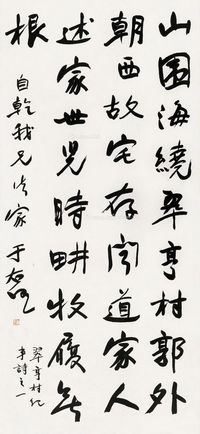 山围海绕翠亨村郭外
朝西故宅存闻道家人
述家世儿时畊牧履无
根
自乾我兄法家
于右任
翠亨村纪
事诗之一